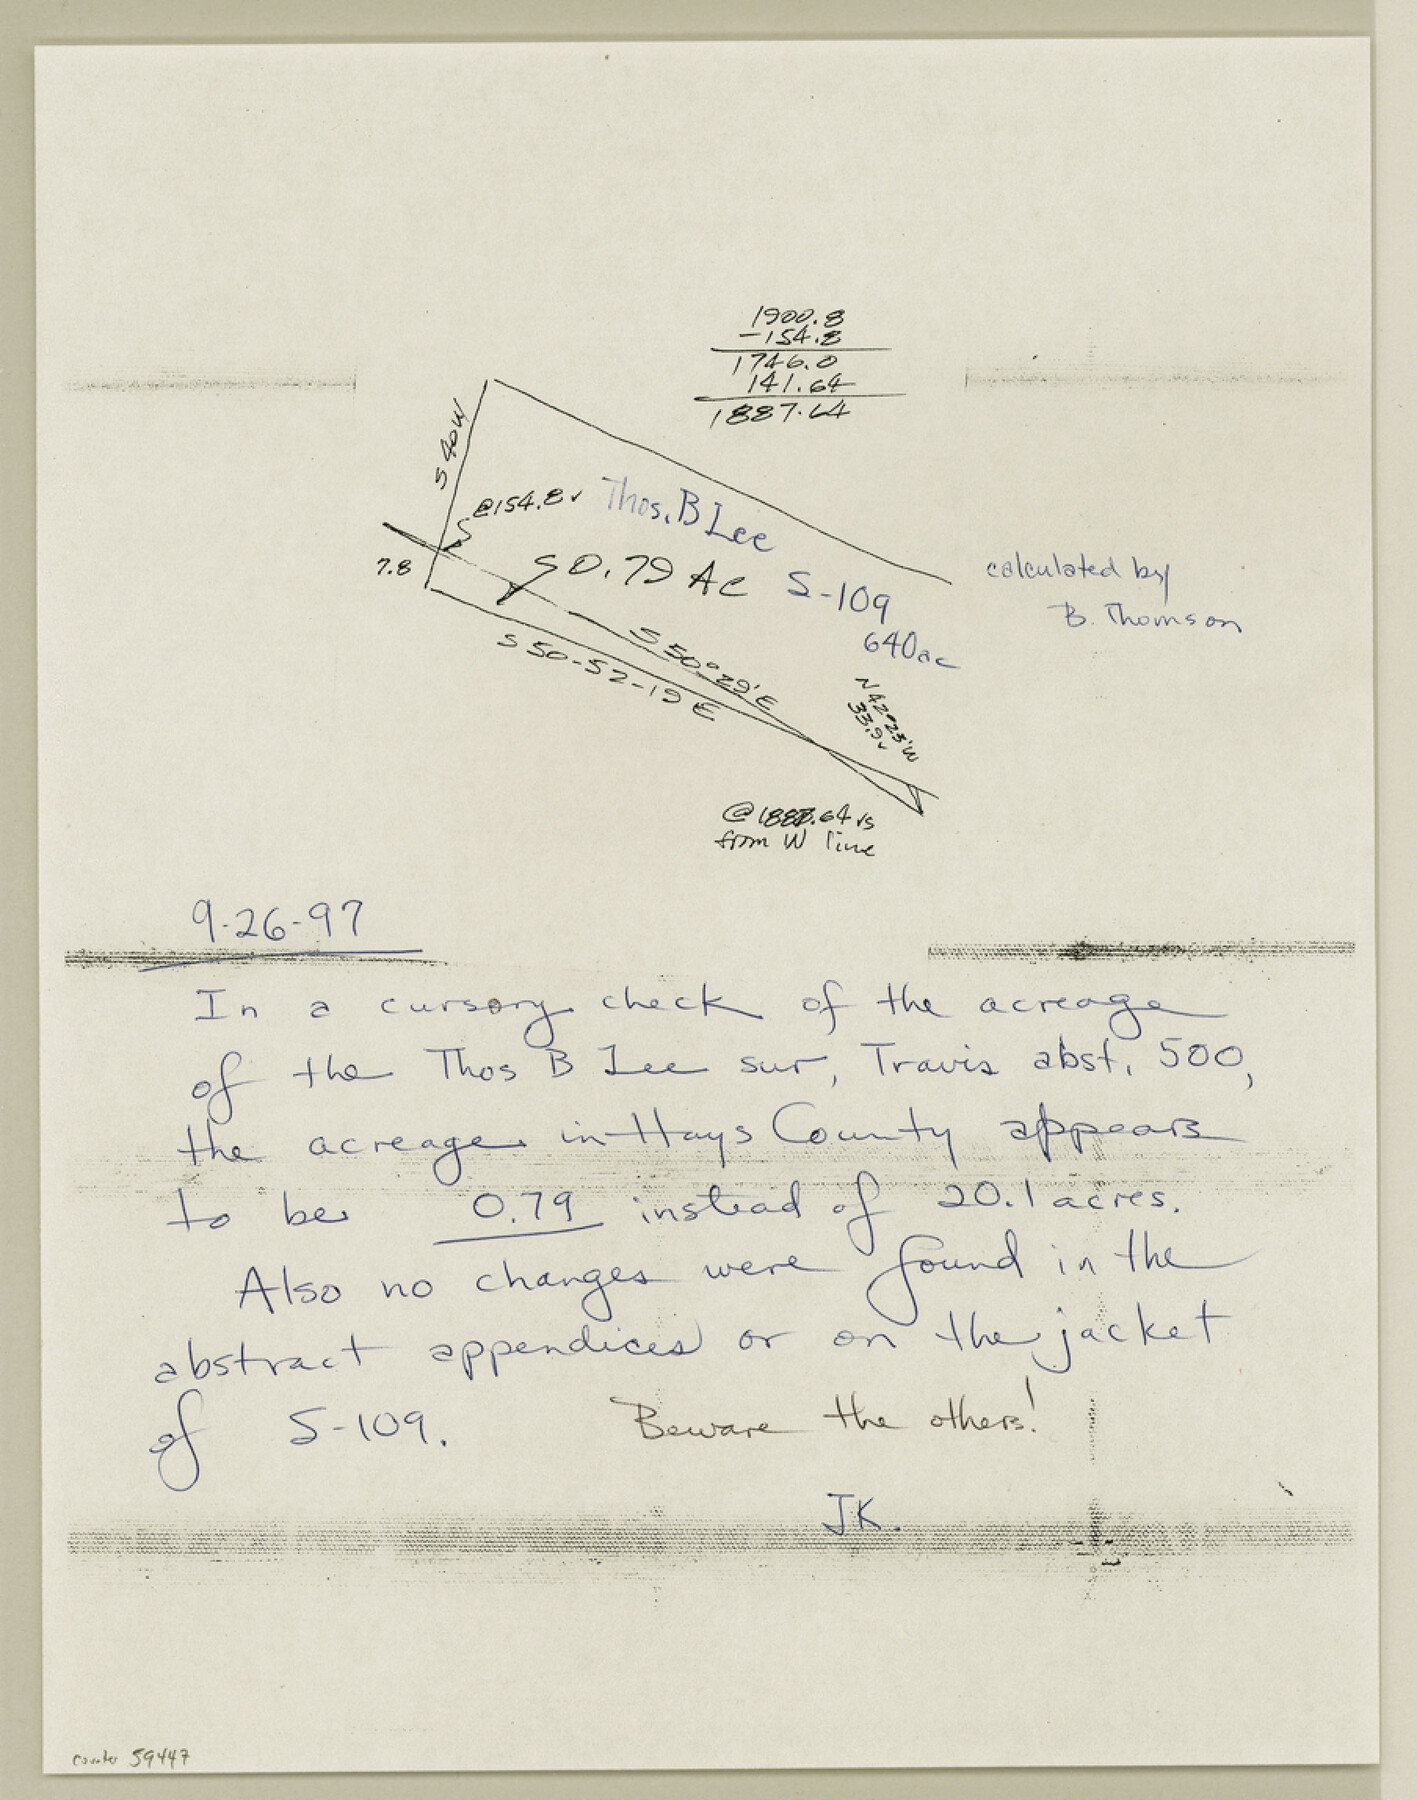 1900.8
-154.8
1746.0
141.64
1887.64
S 40 W
@154.8 v
Thos. B Lee
7.8
0.79 Ac
S-109
640ac
calculated by
B. Thomson
S 50°29' E
S 50-52-19 E
N 42°23' W
33.9 v
@1887.64 vs
from W line
9-26-97
In a cursory check of the acreage
of the Thos B Lee sur, Travis abst. 500,
the acreage in Hays County appears
to be 0.79 instead of 20.1 acres.
Also no changes were found in the
abstract appendices or on the jacket
of S-109. Beware the others!
JK.
counter 59447